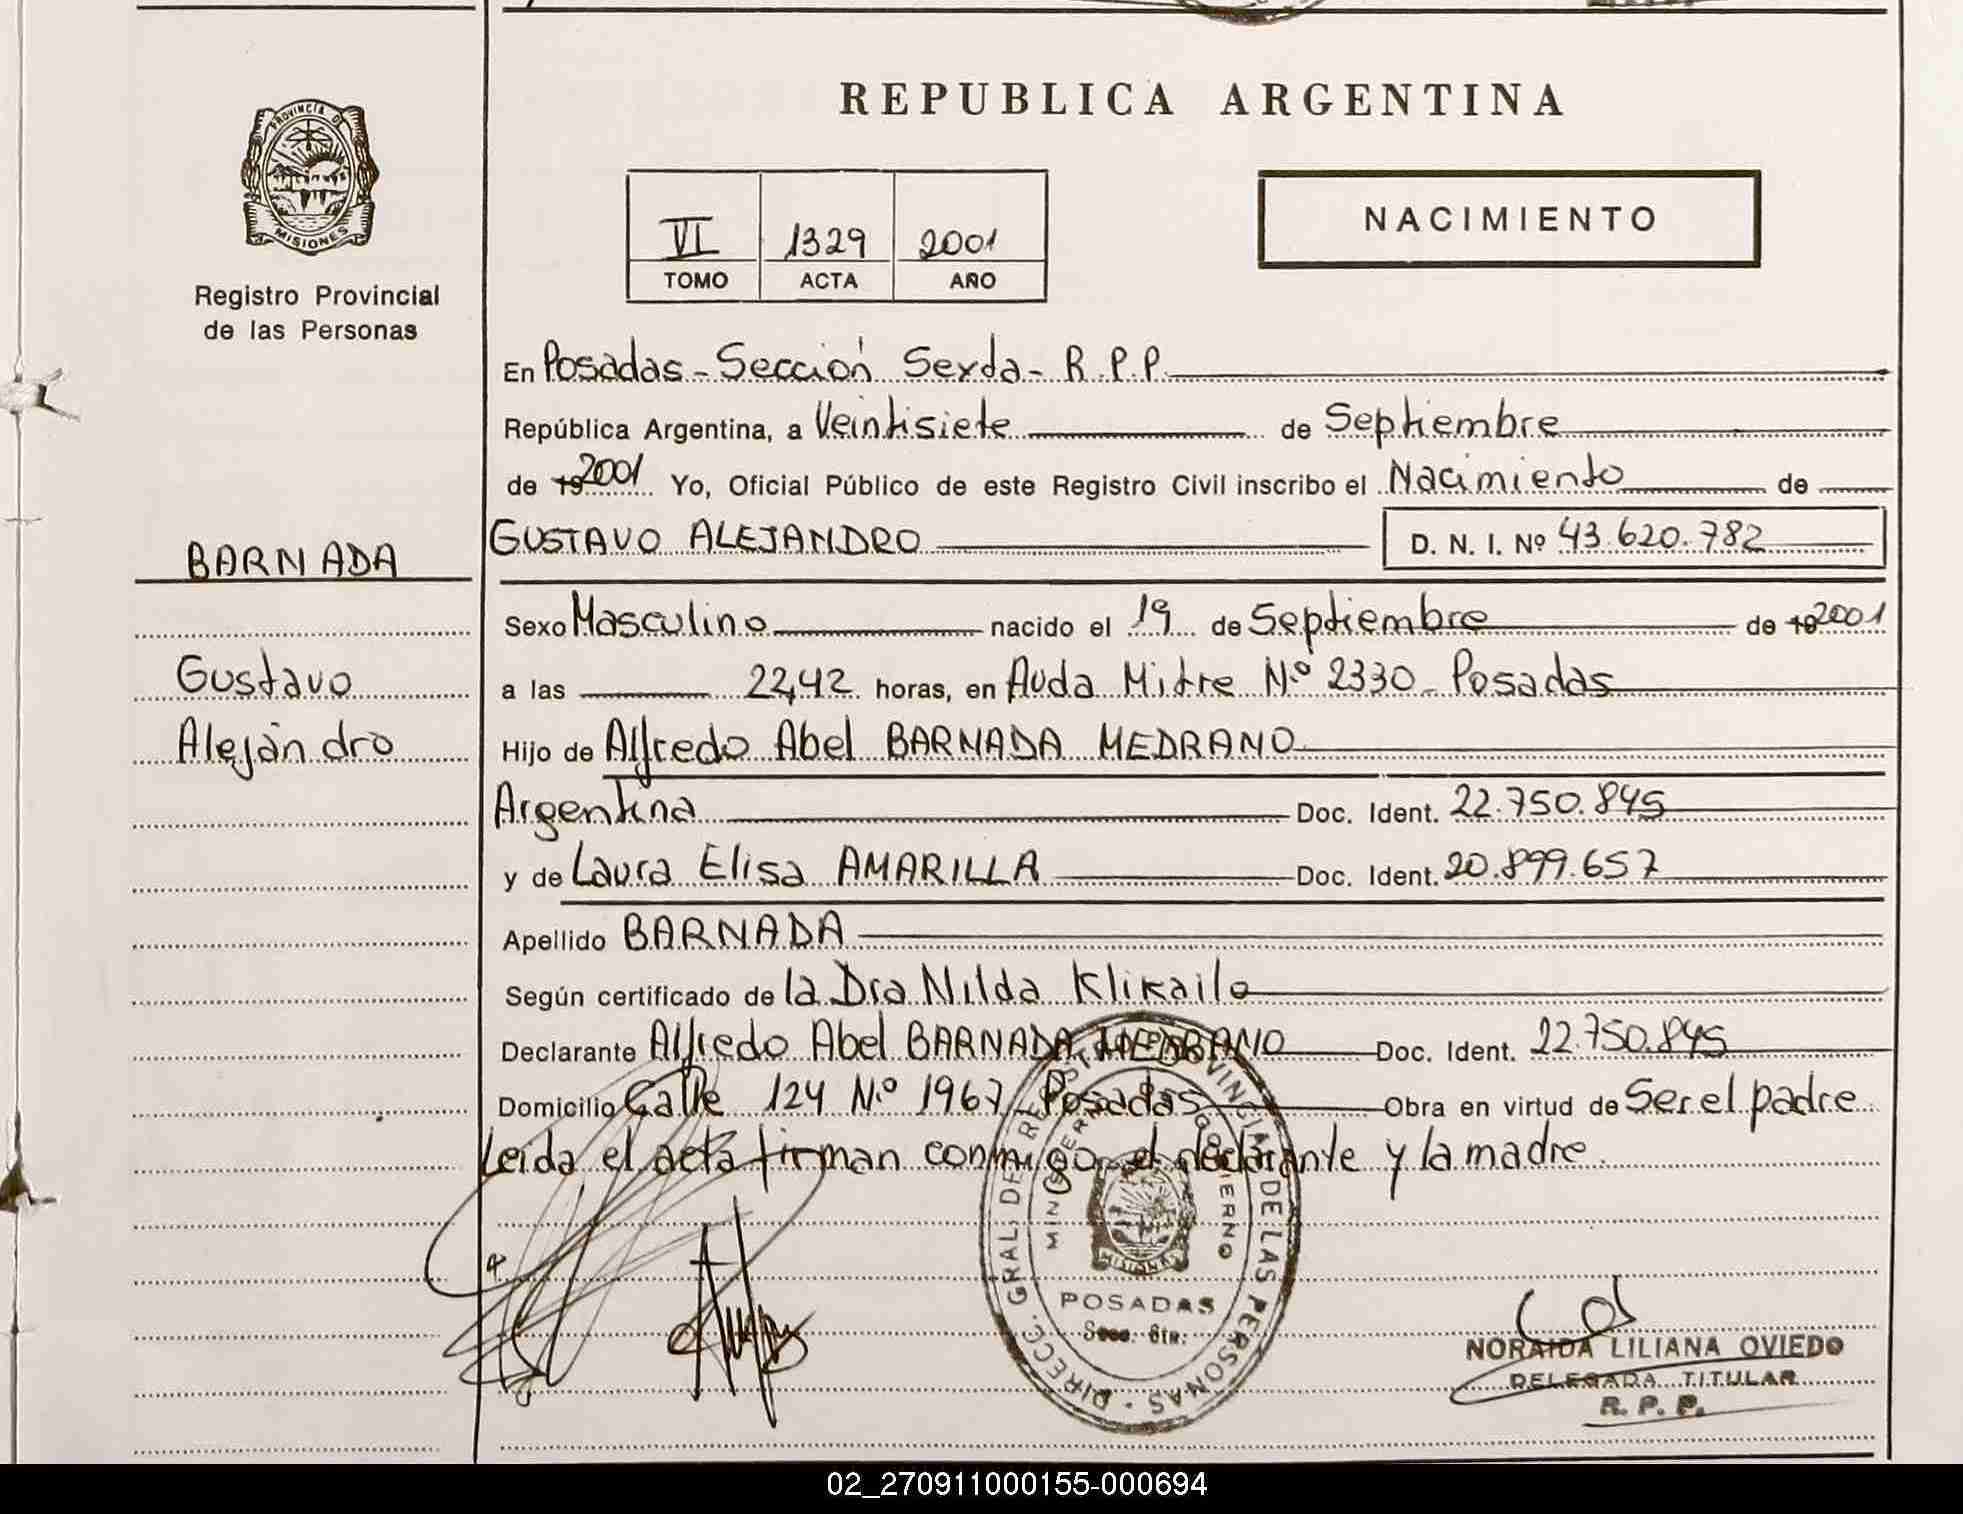 REPUBLICA ARGENTINA
PROVINCIA DE
MISIONES
Registro Provincial
de las Personas
VI 1329 2001
TOMO ACTA AÑO
NACIMIENTO
En Posadas - Sección Sexta - R.P.P.
República Argentina, a Veintisiete de Septiembre
de 19 2001 Yo, Oficial Público de este Registro Civil inscribo el Nacimiento de
GUSTAVO ALEJANDRO D. N. I. Nº 43.620.782
BARNADA
Gustavo
Alejandro
Sexo Masculino nacido el 19 de Septiembre de 19 2001
a las 22,42 horas, en Avda Mitre Nº 2330 - Posadas
Hijo de Alfredo Abel BARNADA MEDRANO
Argentina Doc. Ident. 22.750.845
y de Laura Elisa AMARILLA Doc. Ident. 20.899.657
Apellido BARNADA
Según certificado de la Dra Nilda Klikailo
Declarante Alfredo Abel BARNADA MEDRANO Doc. Ident. 22.750.845
Domicilio Calle 124 Nº 1967 - Posadas Obra en virtud de Ser el padre
Leida el acta firman conmigo el declarante y la madre
DIRECC. GRAL. DE REGISTRO PROVINCIAL DE LAS PERSONAS
MINISTERIO GOBIERNO
MISIONES
POSADAS
Secc. 6ta.
NORAIDA LILIANA OVIEDO
DELEGADA TITULAR
R. P. P.
02_270911000155-000694